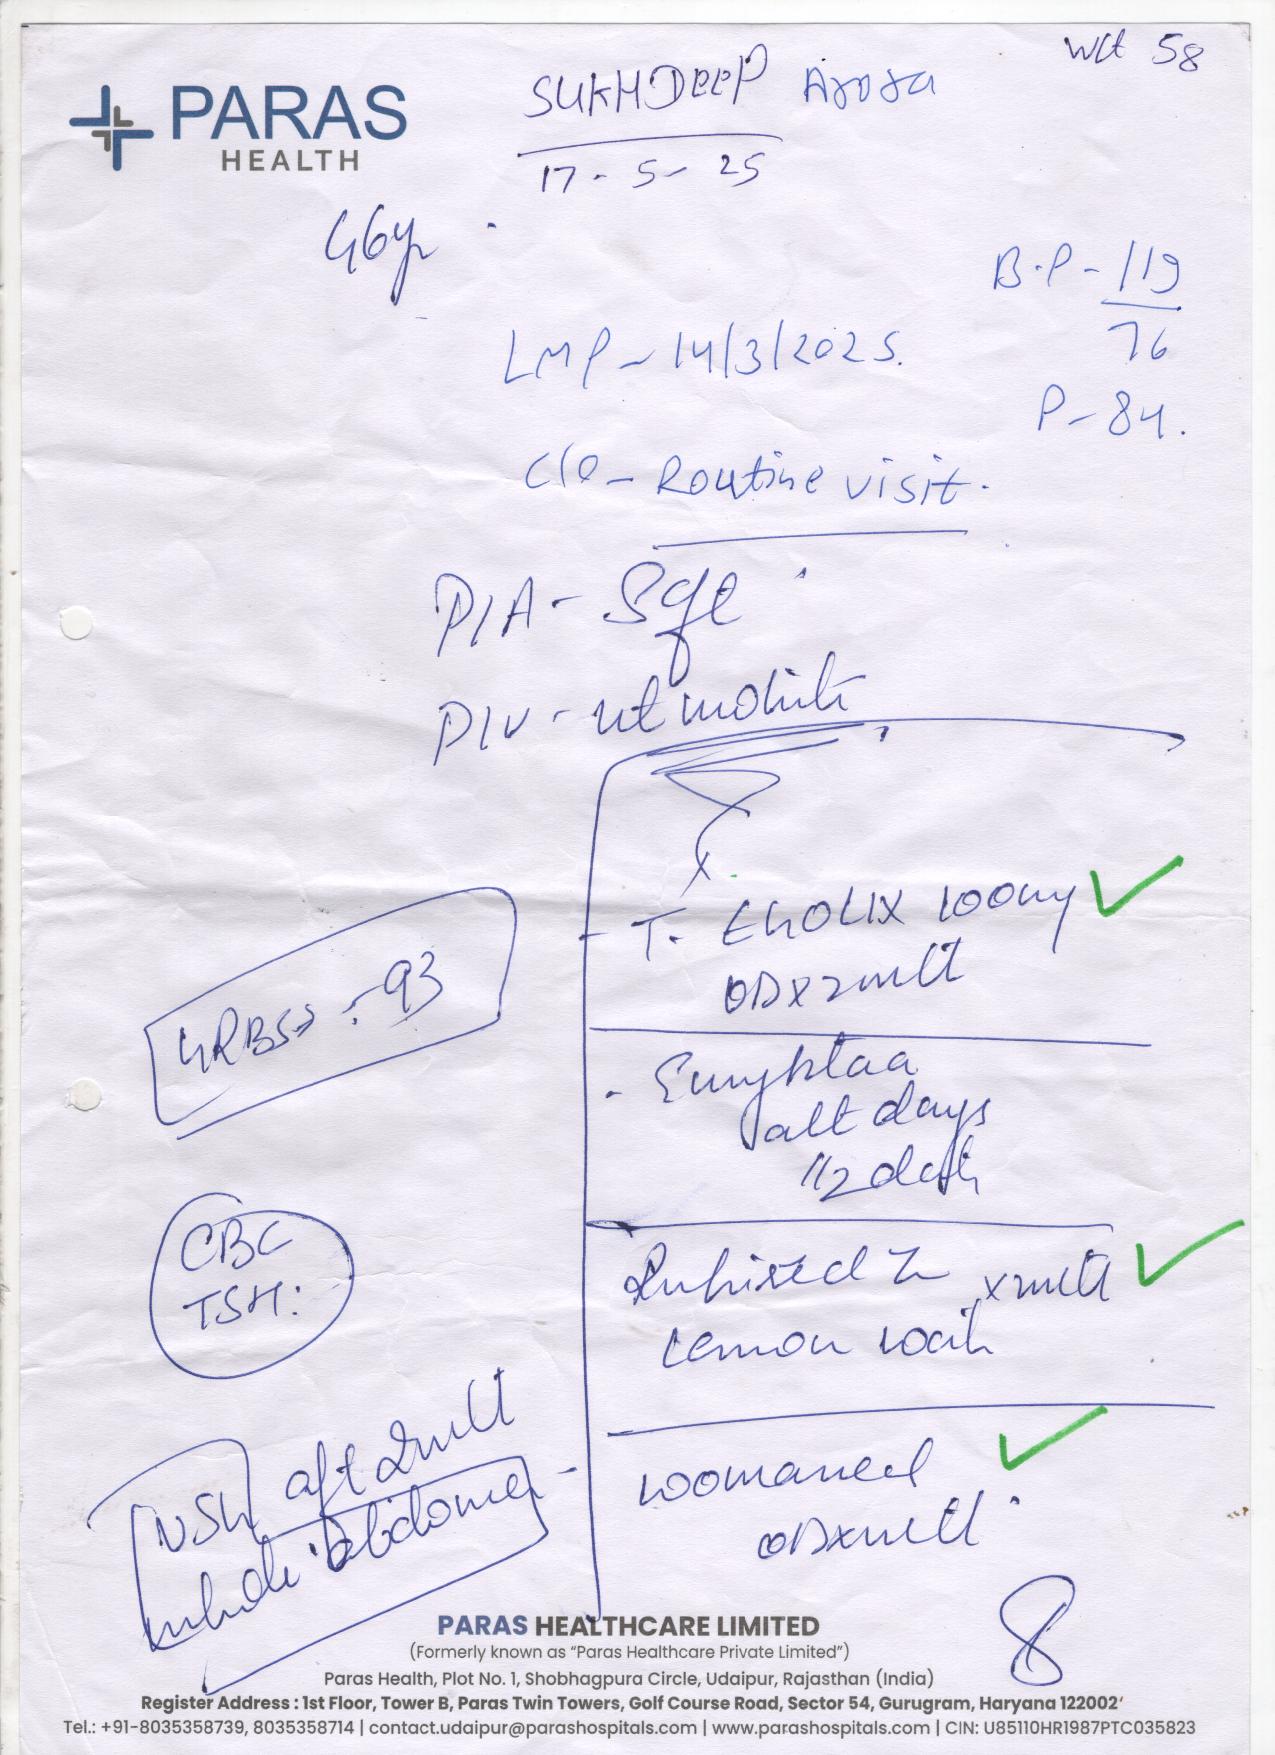 Wt 58
PARAS
HEALTH
SUKHDEEP Arora
17-5-25
46yr
B.P - 119
76
LMP - 14/3/2025.
P - 84.
C/o - Routine visit.
P/A - Soft
P/V - ut mobile
T.
100mg
OD x 2mth
GRBS : 93
alt days
1/2
CBC
TSH:
x mth
lemon
aft 2mth
USG
whole abdomen
OD x mth
PARAS HEALTHCARE LIMITED
(Formerly known as "Paras Healthcare Private Limited")
Paras Health, Plot No. 1, Shobhagpura Circle, Udaipur, Rajasthan (India)
Register Address : 1st Floor, Tower B, Paras Twin Towers, Golf Course Road, Sector 54, Gurugram, Haryana 122002
Tel.: +91-8035358739, 8035358714 | contact.udaipur@parashospitals.com | www.parashospitals.com | CIN: U85110HR1987PTC035823